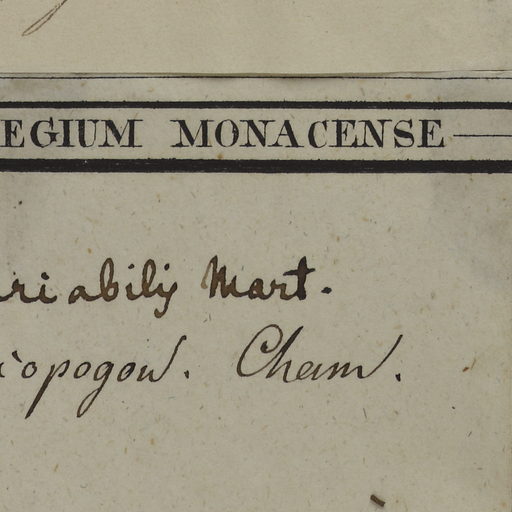 EGIUM MONACENSE
ariabilis Mart.
copogon. Cham.